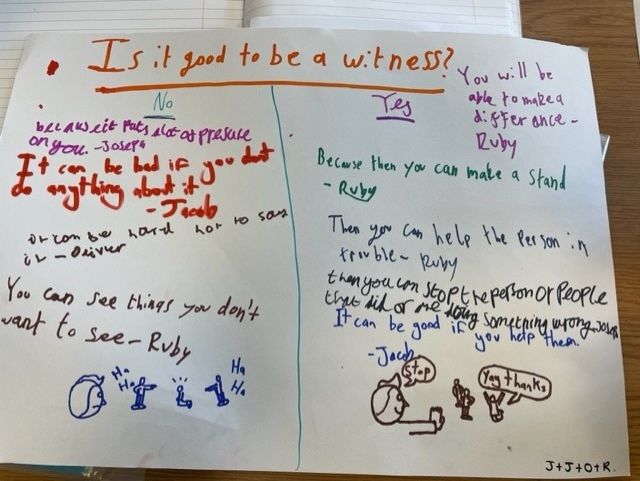 Is it good to be a witness?
No
because it puts alot of presure
on you. - Joseph
It can be bad if you don't
do anything about it
- Jacob
it can be hard not to say
it - Oliver
You can see things you don't
want to see - Ruby
Ha
Ha
Ha
Ha
Yes
You will be
able to make a
difference -
Ruby
Because then you can make a stand
- Ruby
Then you can help the person in
trouble - Ruby
then you can stop the person or people
that did or are doing something wrong. Joseph
It can be good if you help them.
- Jacob
Stop
Yay thanks
J+J+O+R.